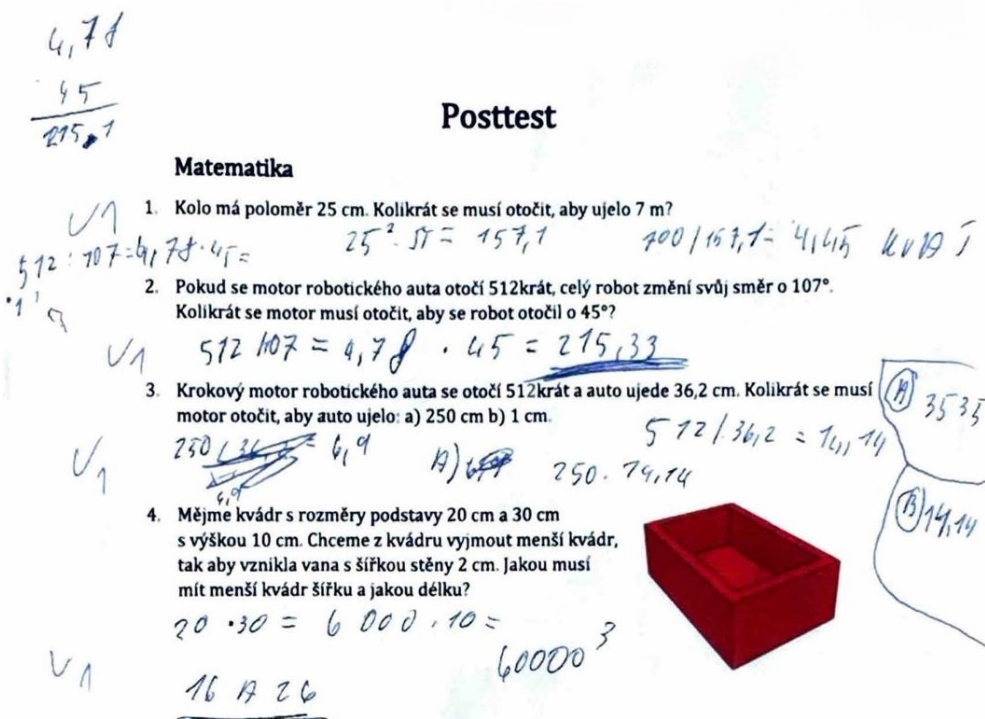 4,78
45
215,1
Posttest
Matematika
√1
1. Kolo má poloměr 25 cm. Kolikrát se musí otočit, aby ujelo 7 m?
25² · π = 157,1
700/157,1 = 4,45 KVÁT
512 : 107 = 4,78 · 45 =
2. Pokud se motor robotického auta otočí 512krát, celý robot změní svůj směr o 107°.
Kolikrát se motor musí otočit, aby se robot otočil o 45°?
√1
512 107 = 4,78 · 45 = 215,33
3. Krokový motor robotického auta se otočí 512krát a auto ujede 36,2 cm. Kolikrát se musí
motor otočit, aby auto ujelo: a) 250 cm b) 1 cm.
A) 3535
√1
250 = 6,9
512/36,2 = 14,14
A) 250 · 14,14
6,9
B) 14,14
4. Mějme kvádr s rozměry podstavy 20 cm a 30 cm
s výškou 10 cm. Chceme z kvádru vyjmout menší kvádr,
tak aby vznikla vana s šířkou stěny 2 cm. Jakou musí
mít menší kvádr šířku a jakou délku?
20 · 30 = 6 000 · 10 =
60000³
√1
16 A 26